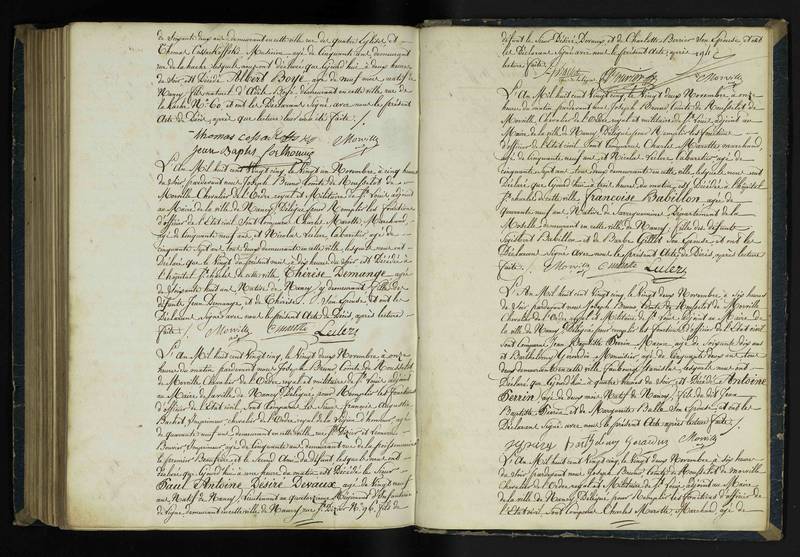 de Soixante deux ans demeurant en cette ville rue de quatre Eglises et
Thomas Cassakoffski Militaire agé de Cinquante ans demeurant
rue de la hache lesquels nous ont déclaré que Lejourd'hui à deux heures
du Soir est Décédé Albert Bossé agé de neuf mois natif de
Nancy fils naturel d'Odile Bossé demeurant en cette ville rue de
la hache No 60, et ont les Déclarants Signé avec nous le présent
Acte de Décès, après que lecture leur en a été faite.
Morville
jean Baptis
L'An Mil huit cent Vingt cinq, le Vingt un Novembre, à cinq heures
du Soir pardevant nous Joseph Bruno Comte de
Morville Chevalier de l'Ordre royal et Militaire de St Louis, adjoint
au Maire de la ville de Nancy, Délégué pour Remplir les fonctions
d'officier de l'Etat civil Sont Comparus Charles Marotte, Marchand,
agé de Cinquante neuf ans et Nicolas Leclerc cabaretier agé de
cinquante Sept ans tous deux demeurant en cette ville, lesquels nous ont
Déclaré que le Vingt du présent mois à dix heures du Soir est Décédée à
l'hopital St Charles de cette ville Thérèse Demange agée
de Soixante huit ans Native de Nancy y demeurant fille des
défunts Jean Demange, et de Thérèse Son Epouse, et ont les
Déclarants Signé avec nous le présent Acte de Décès, après lecture
faite.
Morville Marotte Leclerc
L'An Mil huit cent Vingt cinq, le Vingt deux Novembre à onze
heures du matin pardevant nous Joseph Bruno Comte de
de Morville Chevalier de l'Ordre royal et militaire de St Louis adjoint
au Maire de la ville de Nancy, Délégué pour Remplir les fonctions
d'officier de l'Etat civil, Sont Comparus le Sieur François Augustin
Bachot Imprimeur chevalier de l'Ordre royal de la légion d'honneur, agé
de quarante neuf ans demeurant en cette ville rue St Dizier et
Imprimeur agé de Cinquante ans, demeurant rue de la poissonnerie
le premier Beau frère et le Second Ami du défunt lesquels nous ont
déclaré que Lejourd'hui à une heure du matin est Décédé le Sieur
Paul Antoine Désiré Devaux agé de Vingt neuf
ans Natif de Nancy, Lieutenant au quatorzième Régiment d'Infanterie
de ligne, demeurant en cette ville de Nancy rue St Dizier No 96, fils de
défunt le Sieur Désiré Devaux et de Charlotte Son Epouse, et ont
les Déclarants Signé avec nous le présent Acte, après
lecture faite.
Morville
L'An Mil huit cent Vingt cinq, le Vingt deux Novembre, à onze
heures du matin pardevant nous Joseph Bruno Comte de
Morville, Chevalier de l'Ordre royal et militaire de St Louis, adjoint au
Maire de la ville de Nancy, Délégué pour Remplir les fonctions
d'officier de l'Etat civil, Sont Comparus Charles Marotte marchand
agé de Cinquante neuf ans, et Nicolas Leclerc cabaretier agé de
cinquante Sept ans tous deux demeurant en cette ville, lesquels nous ont
Déclaré que Lejourd'hui à trois heures du matin, est Décédée à l'hopital
St Charles de cette ville Françoise Babillon agée de
quarante neuf ans, Native de Sarreguemines Département de la
Moselle demeurant en cette ville de Nancy, fille des défunts
Babillon et de Barbe Gillot Son Epouse, et ont les
Déclarants Signé Avec nous le présent Acte de Décès, après lecture
faite. Morville Marotte Leclerc
L'An Mil huit cent Vingt cinq, le Vingt deux Novembre à Six heures
du Soir, pardevant nous Joseph Bruno Comte de Morville
Chevalier de l'Ordre royal et Militaire de St Louis, adjoint au Maire de
la ville de Nancy, Délégué pour remplir les fonctions d'officier de l'Etat civil
Sont Comparus Jean Baptiste Perrin Maçon agé de Soixante dix ans
et Barthelemy Girardin Menuisier agé de Cinquante deux ans tous
deux demeurant en cette ville faubourg Stanislas, lesquels nous ont
Déclaré que Lejourd'hui à quatre heures du Soir, est Décédé Antoine
Perrin agé de deux mois natif de Nancy, fils du dit Jean
Baptiste Perrin, et de Marguerite Balla Son Epouse, et ont les
Déclarants Signé Avec nous le présent Acte, après lecture faite.
Morville
L'An Mil huit cent Vingt cinq, le Vingt deux Novembre, à Six heures
du Soir pardevant nous Joseph Bruno Comte de morville
Chevalier de l'Ordre royal et Militaire de St Louis, adjoint au Maire
de la ville de Nancy, Délégué pour Remplir les fonctions d'officier de
l'Etat civil, Sont Comparus Charles Marotte, Marchand, agé de